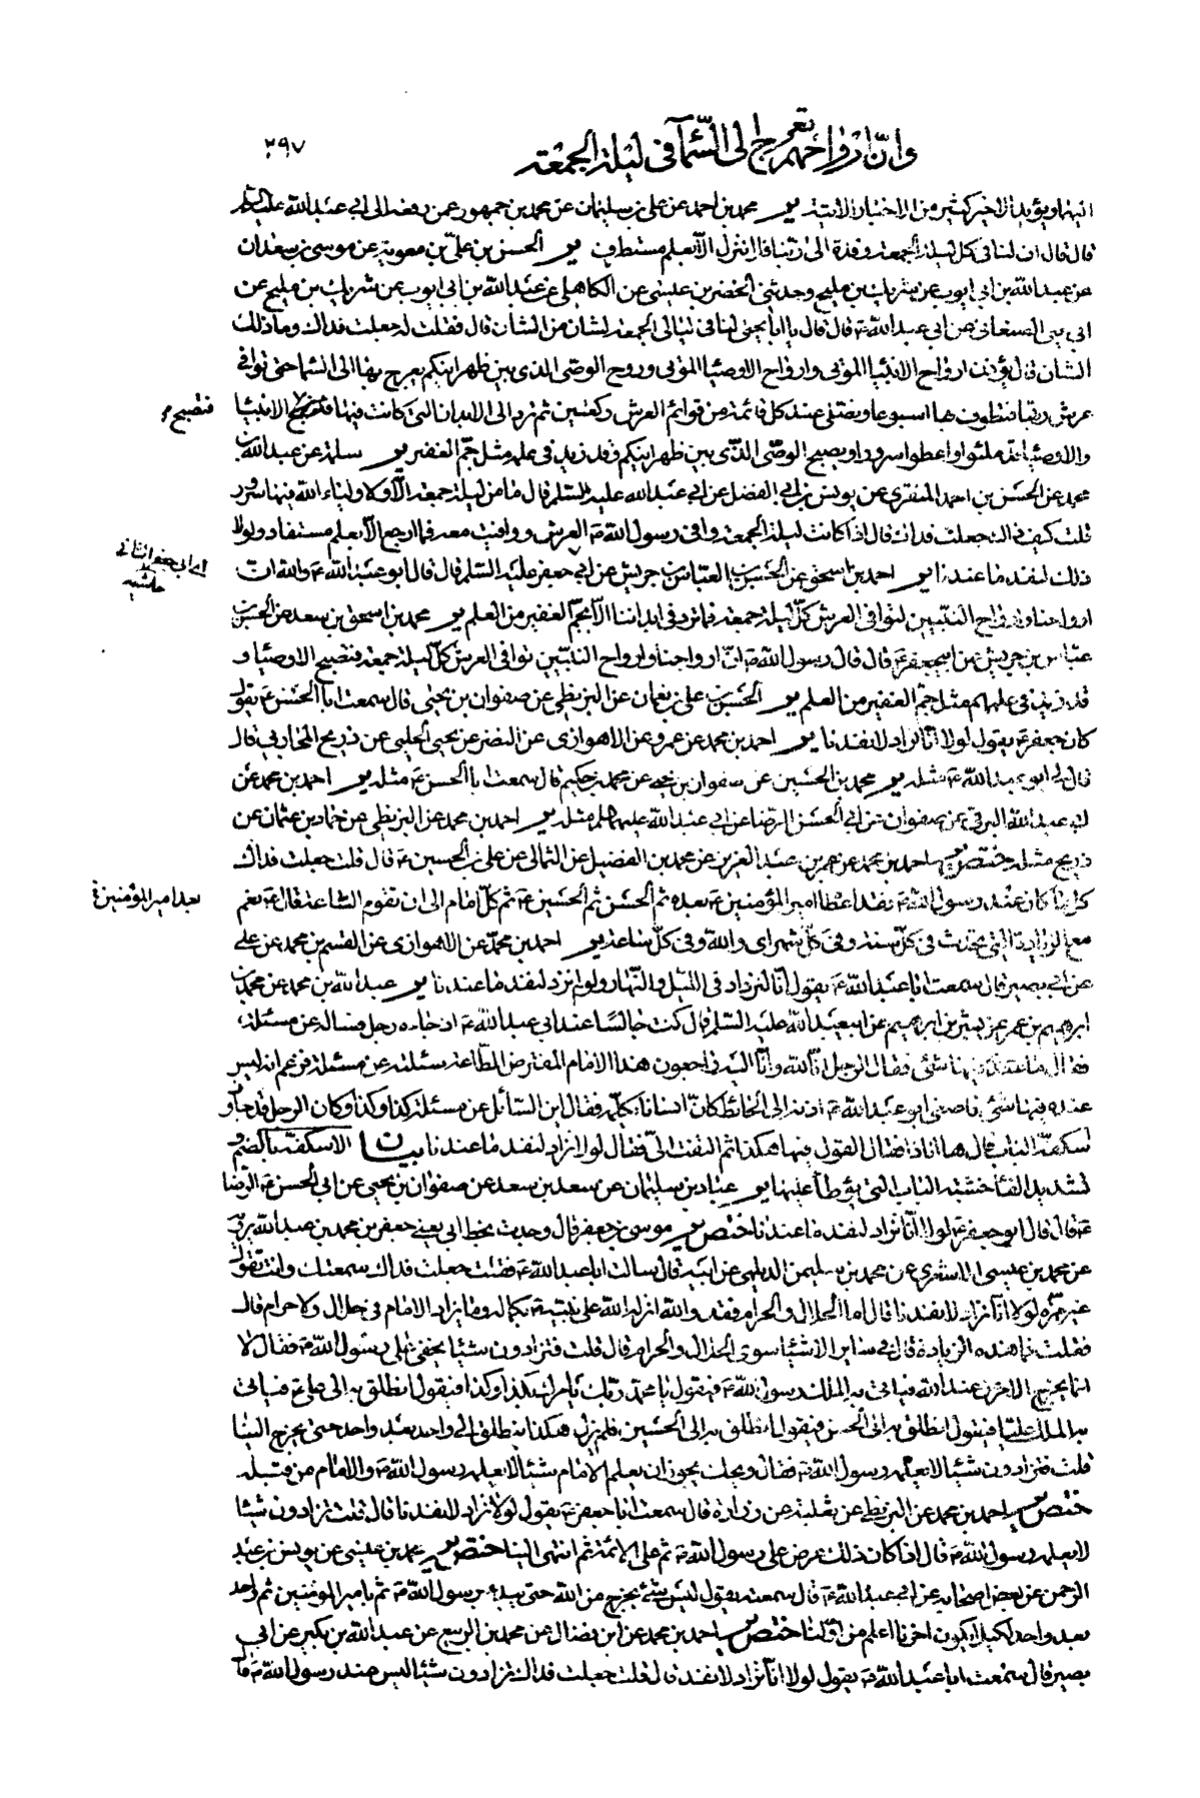 وانّ ارواحهم تعرج الى السّمآء فى ليلة الجمعة
٢٩٧
اليها ويؤيد الاخير كثير من الاخبار الاتية ير محمد بن احمد عن على بن سليمان عن محمد بن جمهور عمن رفعه الى ابى عبد الله عليه السلم
قال قال ان لنا فى كل ليلة الجمعة وفدة الى ربنا فلا ننزل الا بعلم مستطرف ير الحسن بن علىّ بن معوية عن موسى بن سعدان
عن عبد الله بن ابى ايوب عن شريك بن مليح وحدثنى الخضر بن عيسى عن الكاهلى عن عبد الله بن ابى ايوب عن شريك بن مليح عن
ابى يحيى الصنعانى عن ابى عبد الله ع قال قال يا ابا يحيى لنا فى ليالى الجمعة لشان من الشان قال فقلت له جعلت فداك وما ذلك
الشان قال يؤذن ارواح الانبيا الموتى وارواح الاوصيا الموتى وروح الوصى الذى بين ظهرانيكم يعرج بها الى السما حتى توافى
عرش ربها فتطوف بها اسبوعا وتصلى عند كل قائمة من قوائم العرش ركعتين ثم ترد الى الابدان التى كانت فيها فتصبح الانبيا
فتصبح
والاوصيا قد ملئوا واعطوا سرورا ويصبح الوصى الذى بين ظهرانيكم وقد زيد فى علمه مثل جم الغفير ير سلمة عن عبد الله بن
محمد عن الحسن بن احمد المنقرى عن يونس بن ابى الفضل عن ابى عبد الله عليه السلم قال ما من ليلة جمعة الّا ولاولياء الله فيها سرور
قلت كيف ذاك جعلت فداك قال اذا كانت ليلة الجمعة وافى رسول الله ص العرش ووافيت معه فما ارجع الا بعلم مستفاد ولولا
ذلك لنفد ما عندنا ير احمد بن اسحق عن الحسن بن العباس بن جريش عن ابى جعفر عليه السلم قال قال ابو عبد الله ع والله ان
اى ابى جعفر الثانى
حاشيه
ارواحنا وارواح النبيين لتوافى العرش كلّ ليلة جمعة فما ترد فى ابداننا الّا بجمّ الغفير من العلم ير محمد بن اسحق بن سعد عن الحسن بن
عباس بن جريش عن ابيجعفر ع قال قال رسول الله ص انّ ارواحنا وارواح النبيّين توافى العرش كلّ ليلة جمعة فتصبح الاوصيا و
قد زيد فى علمهم مثل جمّ الغفير من العلم ير الحسن بن على بن نعمان عن البزنطى عن صفوان بن يحيى قال سمعت ابا الحسن ع يقول
كان جعفر ع يقول لولا انّا نزاد لانفدنا ير احمد بن محمد عن عمرو عن الاهوازى عن النضر عن يحيى الحلبى عن ذريح المحاربى قال
قال لى ابو عبد الله ع مثله ير محمد بن الحسين عن صفوان بن يحيى عن محمد بن حكيم قال سمعت ابا الحسن ع مثله ير احمد بن محمد عن
ابى عبد الله البرقى عن صفوان عن ابى الحسن الرضا عن ابى عبد الله عليهما السلم مثله ير احمد بن محمد عن البزنطى عن حماد بن عثمان عن
ذريح مثله ختص ير احمد بن محمد عن عمر بن عبد العزيز عن محمد بن الفضيل عن الثمالى عن على بن الحسين ع قال قلت جعلت فداك
كل ما كان عند رسول الله ص فقد اعطا امير المؤمنين ع بعده ثم الحسن ثم الحسين ع ثم كلّ امام الى ان تقوم الساعة قال ع نعم
بعد امير المؤمنين ع
مع الزيادة التى تحدث فى كلّ سنة وفى كلّ شهر اى والله وفى كلّ ساعة ير احمد بن محمّد عن الاهوازى عن القسم بن محمد عن على
عن ابى بصير قال سمعت ابا عبد الله ع يقول انّا لنزداد فى الليل والنهار ولو لم نزد لنفد ما عندنا ير عبد الله بن محمد عن محمد بن
ابرهيم بن عمر عن بشر بن ابرهيم عن ابيعبد الله عليه السلم قال كنت جالسًا عند ابى عبد الله ع اذ جاءه رجل فساله عن مسئلة،
فقال ما عندى فيها شئى فقال الرجل انّا لله وانّا اليه راجعون هذا الامام المفترض الطّاعة سئلته عن مسئلة فزعم انه ليس
عنده فيها شئى فاصغى ابو عبد الله ع اذنه الى الحائط كانّ انسانا يكلّمه فقال اين السّائل عن مسئلة كذا وكذا وكان الرجل قد جاوز
اسكفّة الباب قال ها انا ذا فقال القول فيها هكذا ثم التفت الىّ فقال لولا نزاد لنفد ما عندنا بيان الاسكفّة بالضم و
تشديد الفا خشبة الباب التى يوطأ عليها ير عباد بن سليمان عن سعد بن سعد عن صفوان بن يحيى عن ابى الحسن ع الرضا
ع قال قال ابو جعفر ع لولا انّا نزاد لنفد ما عندنا ختص ير موسى بن جعفر قال وجدت بخط ابى يعنى جعفر بن محمد بن عبد الله يرويه
عن محمد بن عيسى الاشعرى عن محمد بن سليمن الديلمى عن ابيه قال سالت ابا عبد الله ع فقلت جعلت فداك سمعتك وانت تقول
غير مرّه لولا انّا نزاد لانفدنا قال اما الحلال والحرام فقد والله انزله الله على نبيّه ص بكماله وما يزاد الامام فى حلال ولا حرام قال
فقلت فما هذه الزيادة قال فى ساير الاشيا سوى الحلال والحرام قال قلت فتزادون شيئا يخفى على رسول الله ص فقال لا
انما يخرج الامر من عند الله فياتى به الملك رسول الله ص فيقول يا محمّد ربّك يامرك بكذا وكذا فيقول انطلق به الى على ع فياتى
به الملك عليّا فيقول انطلق به الى الحسن فيقول انطلق به الى الحسين فلم يزل هكذا ينطلق الى واحد بعد واحد حتى يخرج الينا
قلت فتزادون شيئا لا يعلمه رسول الله ص فقال ويحك يجوز ان يعلم الامام شيئا لا يعلمه رسول الله ص والامام من قبله
ختص ير احمد بن محمد عن البزنطى عن ثعلبة عن زرارة قال سمعت ابا جعفر ع يقول لولا نزاد لانفدنا قال قلت تزادون شيئا
لا يعلمه رسول الله ص قال اذا كان ذلك عرض على رسول الله ص ثم على الائمة ثم انتهى الينا ختص ير محمد بن عيسى عن يونس بن عبد
الرحمن عن بعض اصحابه عن ابى عبد الله ع قال سمعته يقول ليس شئ يخرج من الله حتى يبدء برسول الله ص ثم بامير المومنين ثم واحد
بعد واحد لكيلا يكون اخرنا اعلم من اوّلنا ختص ير احمد بن محمد عن ابن فضال عن محمد بن الربيع عن عبد الله بن بكير عن ابى
بصير قال سمعت ابا عبد الله ع يقول لولا انّا نزاد لانفدنا قال قلت جعلت فداك تزادون شيئا ليس عند رسول الله ص قا